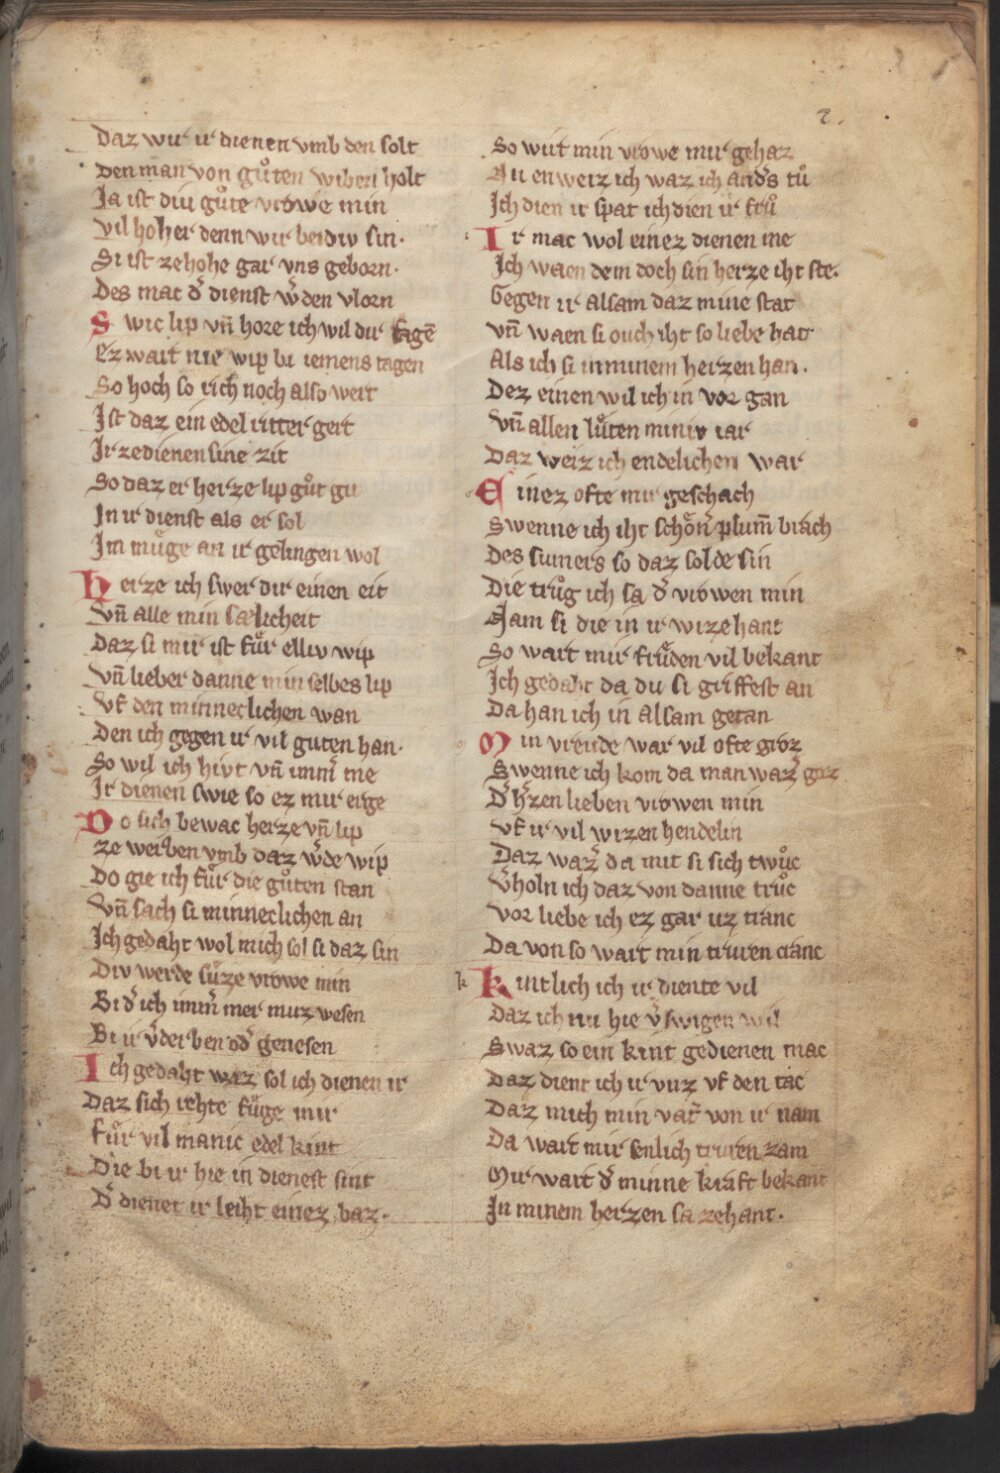 2.
Daz wir ir dienen vmb den solt
Den man von gůten wiben holt
Ja ist diu gůte vrowe min
Vil hoher denn wir beidiv sin·
Si ist ze hohe gar vns geborn·
Des mac d͛ dienst w͛den vlorn
Swic lip vn̄ hore ich wil dir sagē
Ez wart nie wip bi iemens tagen
So hoch so rich noch also wert
Ist daz ein edel ritter gert
Ir ze dienen sine zit
So daz er herze lip gůt git
In ir dienst als er sol
Im muͤge an ir gelingen wol
Herze ich swer dir einen eit
Vn̄ alle min sælicheit
Daz si mir ist fuͤr elliv wip
Vn̄ lieber danne min selbes lip
Vf den minneclichen wan
Den ich gegen ir vil guten han·
So wil ich hivt vn̄ imm͛ me
Ir dienen swie so ez mir erge
Do sich bewac herze vn̄ lip
ze werben vmb daz w͛de wip
Do gie ich fuͤr die gůten stan
Vn̄ sach si minneclichen an
Ich gedaht wol mich sol si daz sin
Div werde suͤze vrowe min
Bi d͛ ich imm͛ mer muz wesen
Bi ir v͛derben od͛ genesen
Ich gedaht waz sol ich dienen ir
Daz sich rehte fuͤge mir
Fuͤr vil manic edel kint
Die bi ir hie in dienest sint
D͛ dienet ir leiht einez baz·
So wirt min vrowe mir gehaz
Nu enweiz ich waz ich and͛s tů
Ich dien ir spat ich dien ir frů
Ir mac wol einez dienen me
Ich waen dem doch sin herze iht ste·
Gegen ir alsam daz mine stat
Vn̄ waen si ouch iht so liebe hat
Als ich si in minem herzen han·
Dez einen wil ich in vor gan
Vn̄ allen luͤten miniv iar
Daz weiz ich endelichen war
Einez ofte mir geschach
Swenne ich iht schoͤn͛ plum̄ brach
Des sumers so daz solde sin
Die trůg ich sa d͛ vrowen min
Nam si die in ir wize hant
So wart mir fruͤden vil bekant
Ich gedaht da du si griffest an
Da han ich in alsam getan
Min vreude war vil ofte groz
Swenne ich kom da man waz͛ goz
D͛ h͛zen lieben vrowen min
Vf ir vil wizen hendelin
Daz waz͛ da mit si sich twůc
V͛holn ich daz von danne trůc
Vor liebe ich ez gar uz tranc
Da von so wart min truren cranc
k Kintlich ich ir diente vil
Daz ich nu hie v͛swigen wil
Swaz so ein kint gedienen mac
Daz dient ich ir vnz vf den tac
Daz mich min vat͛ von ir nam
Da wart mir senlich truren zam
Mir wart d͛ minne kraft bekant
In minem herzen sa zehant·